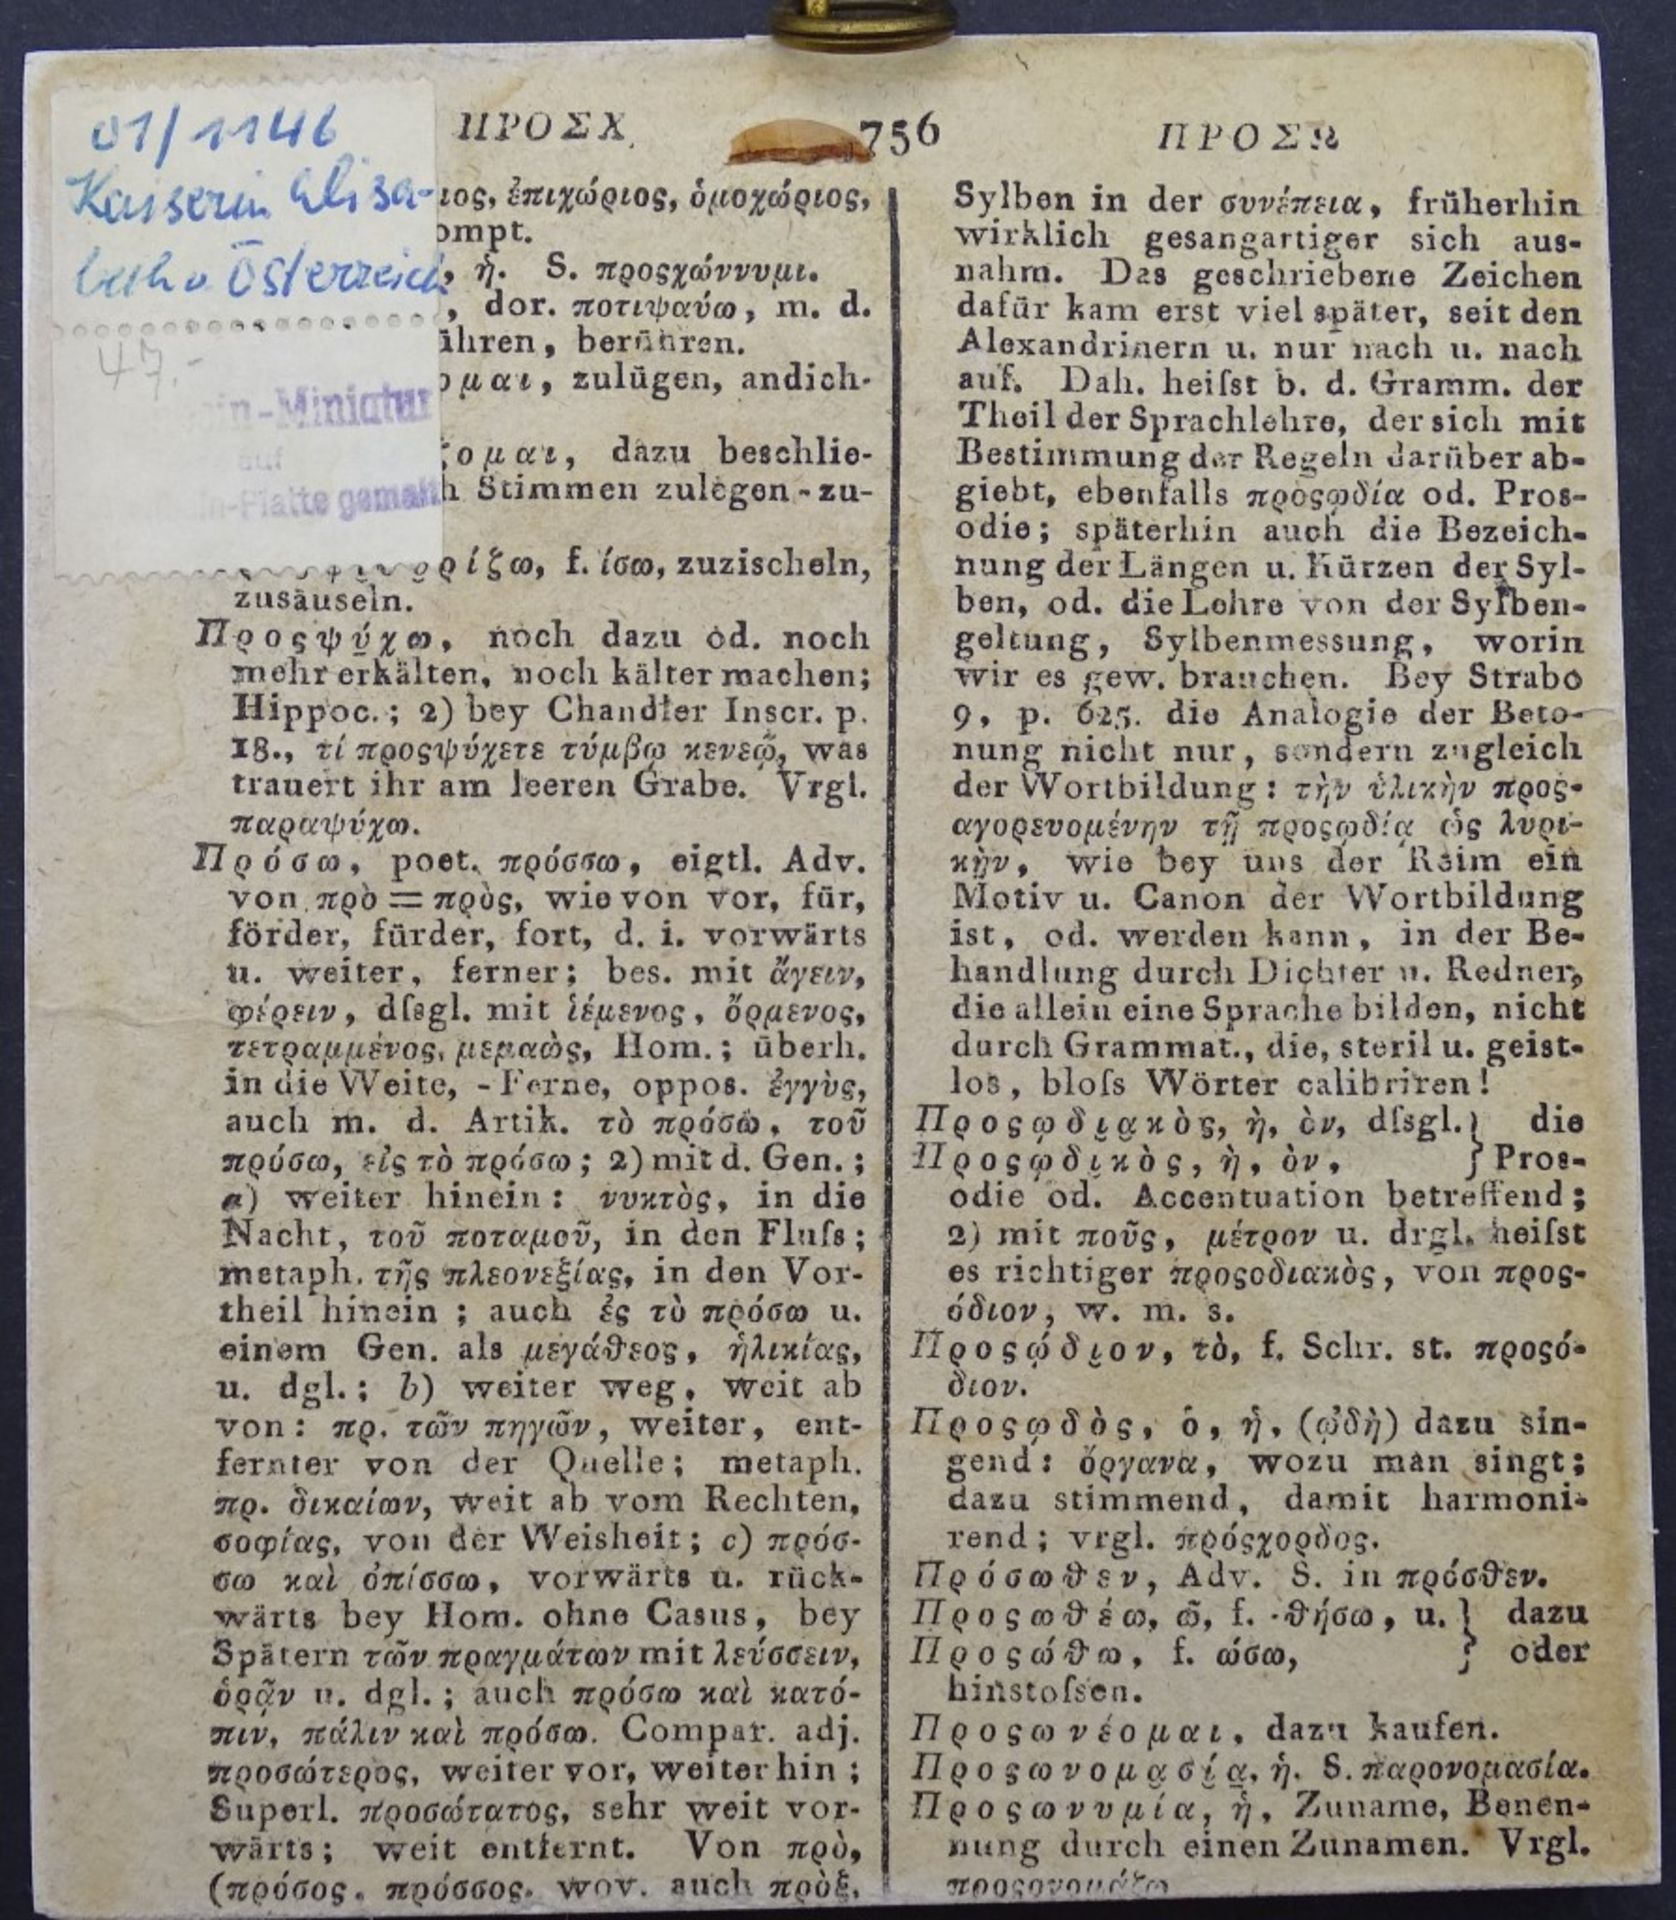 01/1146
Kaiserin Elisa-
beth v Österreich
47.-
in-Miniatur
auf
in-Platte gemalt
ΠΡΟΣΧ
756
ΠΡΟΣΩ
ιος, ἐπιχώριος, ὁμοχώριος,
ompt.
, ἡ. S. προςχώννυμι.
, dor. ποτιψαύω, m. d.
ühren, berühren.
ομαι, zulügen, andich-
ζομαι, dazu beschlie-
h Stimmen zulegen-zu-
ρίζω, f. ίσω, zuzischeln,
zusäuseln.
Προςψύχω, noch dazu od. noch
mehr erkälten, noch kälter machen;
Hippoc.; 2) bey Chandler Inscr. p.
18., τί προςψύχετε τύμβῳ κενεῷ, was
trauert ihr am leeren Grabe. Vrgl.
παραψύχω.
Πρόσω, poet. πρόσσω, eigtl. Adv.
von πρὸ = πρὸς, wie von vor, für,
förder, fürder, fort, d. i. vorwärts
u. weiter, ferner; bes. mit ἄγειν,
φέρειν, dſsgl. mit ἱέμενος, ὄρμενος,
τετραμμένος, μεμαὼς, Hom.; überh.
in die Weite, -Ferne, oppos. ἐγγὺς,
auch m. d. Artik. τὸ πρόσω, τοῦ
πρόσω, εἰς τὸ πρόσω; 2) mit d. Gen.;
a) weiter hinein: νυκτὸς, in die
Nacht, τοῦ ποταμοῦ, in den Fluſs;
metaph. τῆς πλεονεξίας, in den Vor-
theil hinein; auch ἐς τὸ πρόσω u.
einem Gen. als μεγάθεος, ἡλικίας,
u. dgl.; b) weiter weg, weit ab
von: πρ. τῶν πηγῶν, weiter, ent-
fernter von der Quelle; metaph.
πρ. δικαίων, weit ab vom Rechten,
σοφίας, von der Weisheit; c) πρόσ-
σω καὶ ὀπίσσω, vorwärts u. rück-
wärts bey Hom. ohne Casus, bey
Spätern τῶν πραγμάτων mit λεύσσειν,
ὁρᾷν u. dgl.; auch πρόσω καὶ κατό-
πιν, πάλιν καὶ πρόσω. Compar. adj.
προσώτερος, weiter vor, weiter hin;
Superl. προσώτατος, sehr weit vor-
wärts; weit entfernt. Von πρὸ,
(πρόσος, πρόσσος, wov. auch πρὸξ,
Sylben in der συνέπεια, früherhin
wirklich gesangartiger sich aus-
nahm. Das geschriebene Zeichen
dafür kam erst viel später, seit den
Alexandrinern u. nur nach u. nach
auf. Dah. heiſst b. d. Gramm. der
Theil der Sprachlehre, der sich mit
Bestimmung der Regeln darüber ab-
giebt, ebenfalls προςῳδία od. Pros-
odie; späterhin auch die Bezeich-
nung der Längen u. Kürzen der Syl-
ben, od. die Lehre von der Sylben-
geltung, Sylbenmessung, worin
wir es gew. brauchen. Bey Strabo
9, p. 625. die Analogie der Beto-
nung nicht nur, sondern zugleich
der Wortbildung: τὴν ὑλικὴν προς-
αγορευομένην τῇ προςῳδίᾳ ὡς λυρι-
κὴν, wie bey uns der Reim ein
Motiv u. Canon der Wortbildung
ist, od. werden kann, in der Be-
handlung durch Dichter u. Redner,
die allein eine Sprache bilden, nicht
durch Grammat., die, steril u. geist-
los, bloſs Wörter calibriren!
Προςῳδιακὸς, ὴ, ὸν, dſsgl.} die
Προςῳδικὸς, ὴ, ὸν, } Pros-
odie od. Accentuation betreffend;
2) mit ποῦς, μέτρον u. drgl. heiſst
es richtiger προςοδιακὸς, von προς-
όδιον, w. m. s.
Προςῴδιον, τὸ, f. Schr. st. προςό-
διον.
Προςῳδὸς, ὁ, ἡ, (ᾠδὴ) dazu sin-
gend: ὄργανα, wozu man singt;
dazu stimmend, damit harmoni-
rend; vrgl. πρόςχορδος.
Πρόσωθεν, Adv. S. in πρόσθεν.
Προςωθέω, ῶ, f. -θήσω, u.} dazu
Προςώθω, f. ώσω, } oder
hinstoſsen.
Προςωνέομαι, dazu kaufen.
Προςωνομασία, ἡ. S. παρονομασία.
Προςωνυμία, ἡ, Zuname, Benen-
nung durch einen Zunamen. Vrgl.
προςονομάζω